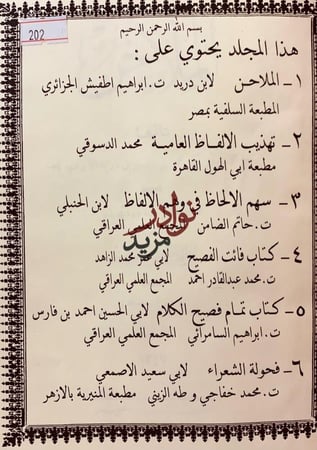 202
بسم الله الرحمن الرحيم
هذا المجلد يحتوي على :
١ - الملاحن لابن دريد ت. ابراهيم اطفيش الجزائري
المطبعة السلفية بمصر
٢ - تهذيب الالفاظ العامية محمد الدسوقي
مطبعة ابي الهول القاهرة
٣ - سهم الالحاظ في وهم الالفاظ لابن الحنبلي
ت. حاتم الضامن العلمي العراقي
نوادر
مزيد
٤ - كتاب فائت الفصيح لابي عمر محمد الزاهد
ت. محمد عبدالقادر احمد المجمع العلمي العراقي
٥ - كتاب تمام فصيح الكلام لابي الحسين احمد بن فارس
ت. ابراهيم السامرائي المجمع العلمي العراقي
٦ - فحولة الشعراء لابي سعيد الاصمعي
ت. محمد خفاجي و طه الزيني مطبعة المنيرية بالازهر